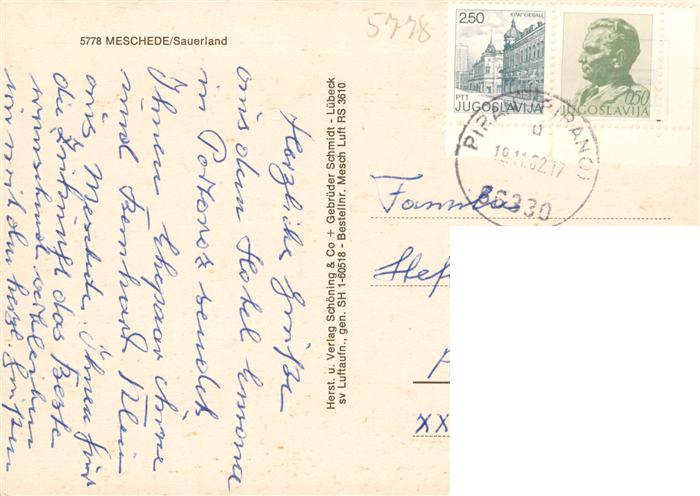 5778 MESCHEDE/Sauerland
5778
2,50
КРАГУЈЕВАЦ
PTT
JUGOSLAVIJA
0,50
JUGOSLAVIJA
PIRAN PIRANO
19.11.82.17
66330
Herzliche Grüße
aus dem Hotel
in Portoroz sendet
Ihnen Ehepaar Anne
und Bernhard Klein
aus Meschede. Ihnen für
die Zukunft das Beste
wünschend verbleiben
wir mit den herzl. Grüßen
Herst. u. Verlag Schöning & Co + Gebrüder Schmidt - Lübeck
sv Luftaufn., gen. SH 1-60518 - Bestellnr. Mesch Luft RS 3610
Familie